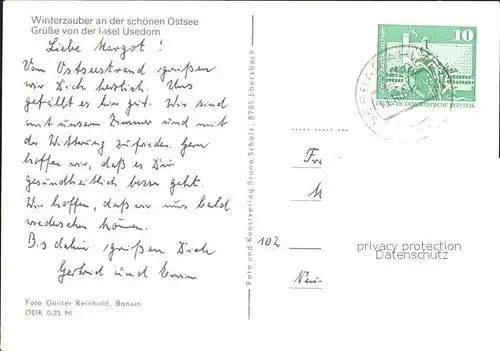 Winterzauber an der schönen Ostsee
Grüße von der Insel Usedom
Liebe Margot!
Vom Ostseestrand grüßen
wir Dich herzlich. Uns
gefällt es hier gut. Wir sind
mit unserem Zimmer und mit
der Witterung zufrieden. Gern
hoffen wir, daß es Dir
gesundheitlich besser geht.
Wir hoffen, daß wir uns bald
wiedersehen können.
Bis dahin grüßen Dich
Gertrud und Erwin
Foto Günter Reinhold, Bansin
DDR 0,25 M
Foto und Kunstverlag Bruno Scholz, 8705 Ebersbach
10
DEUTSCHE DEMOKRATISCHE REPUBLIK
102
privacy protection
Datenschutz